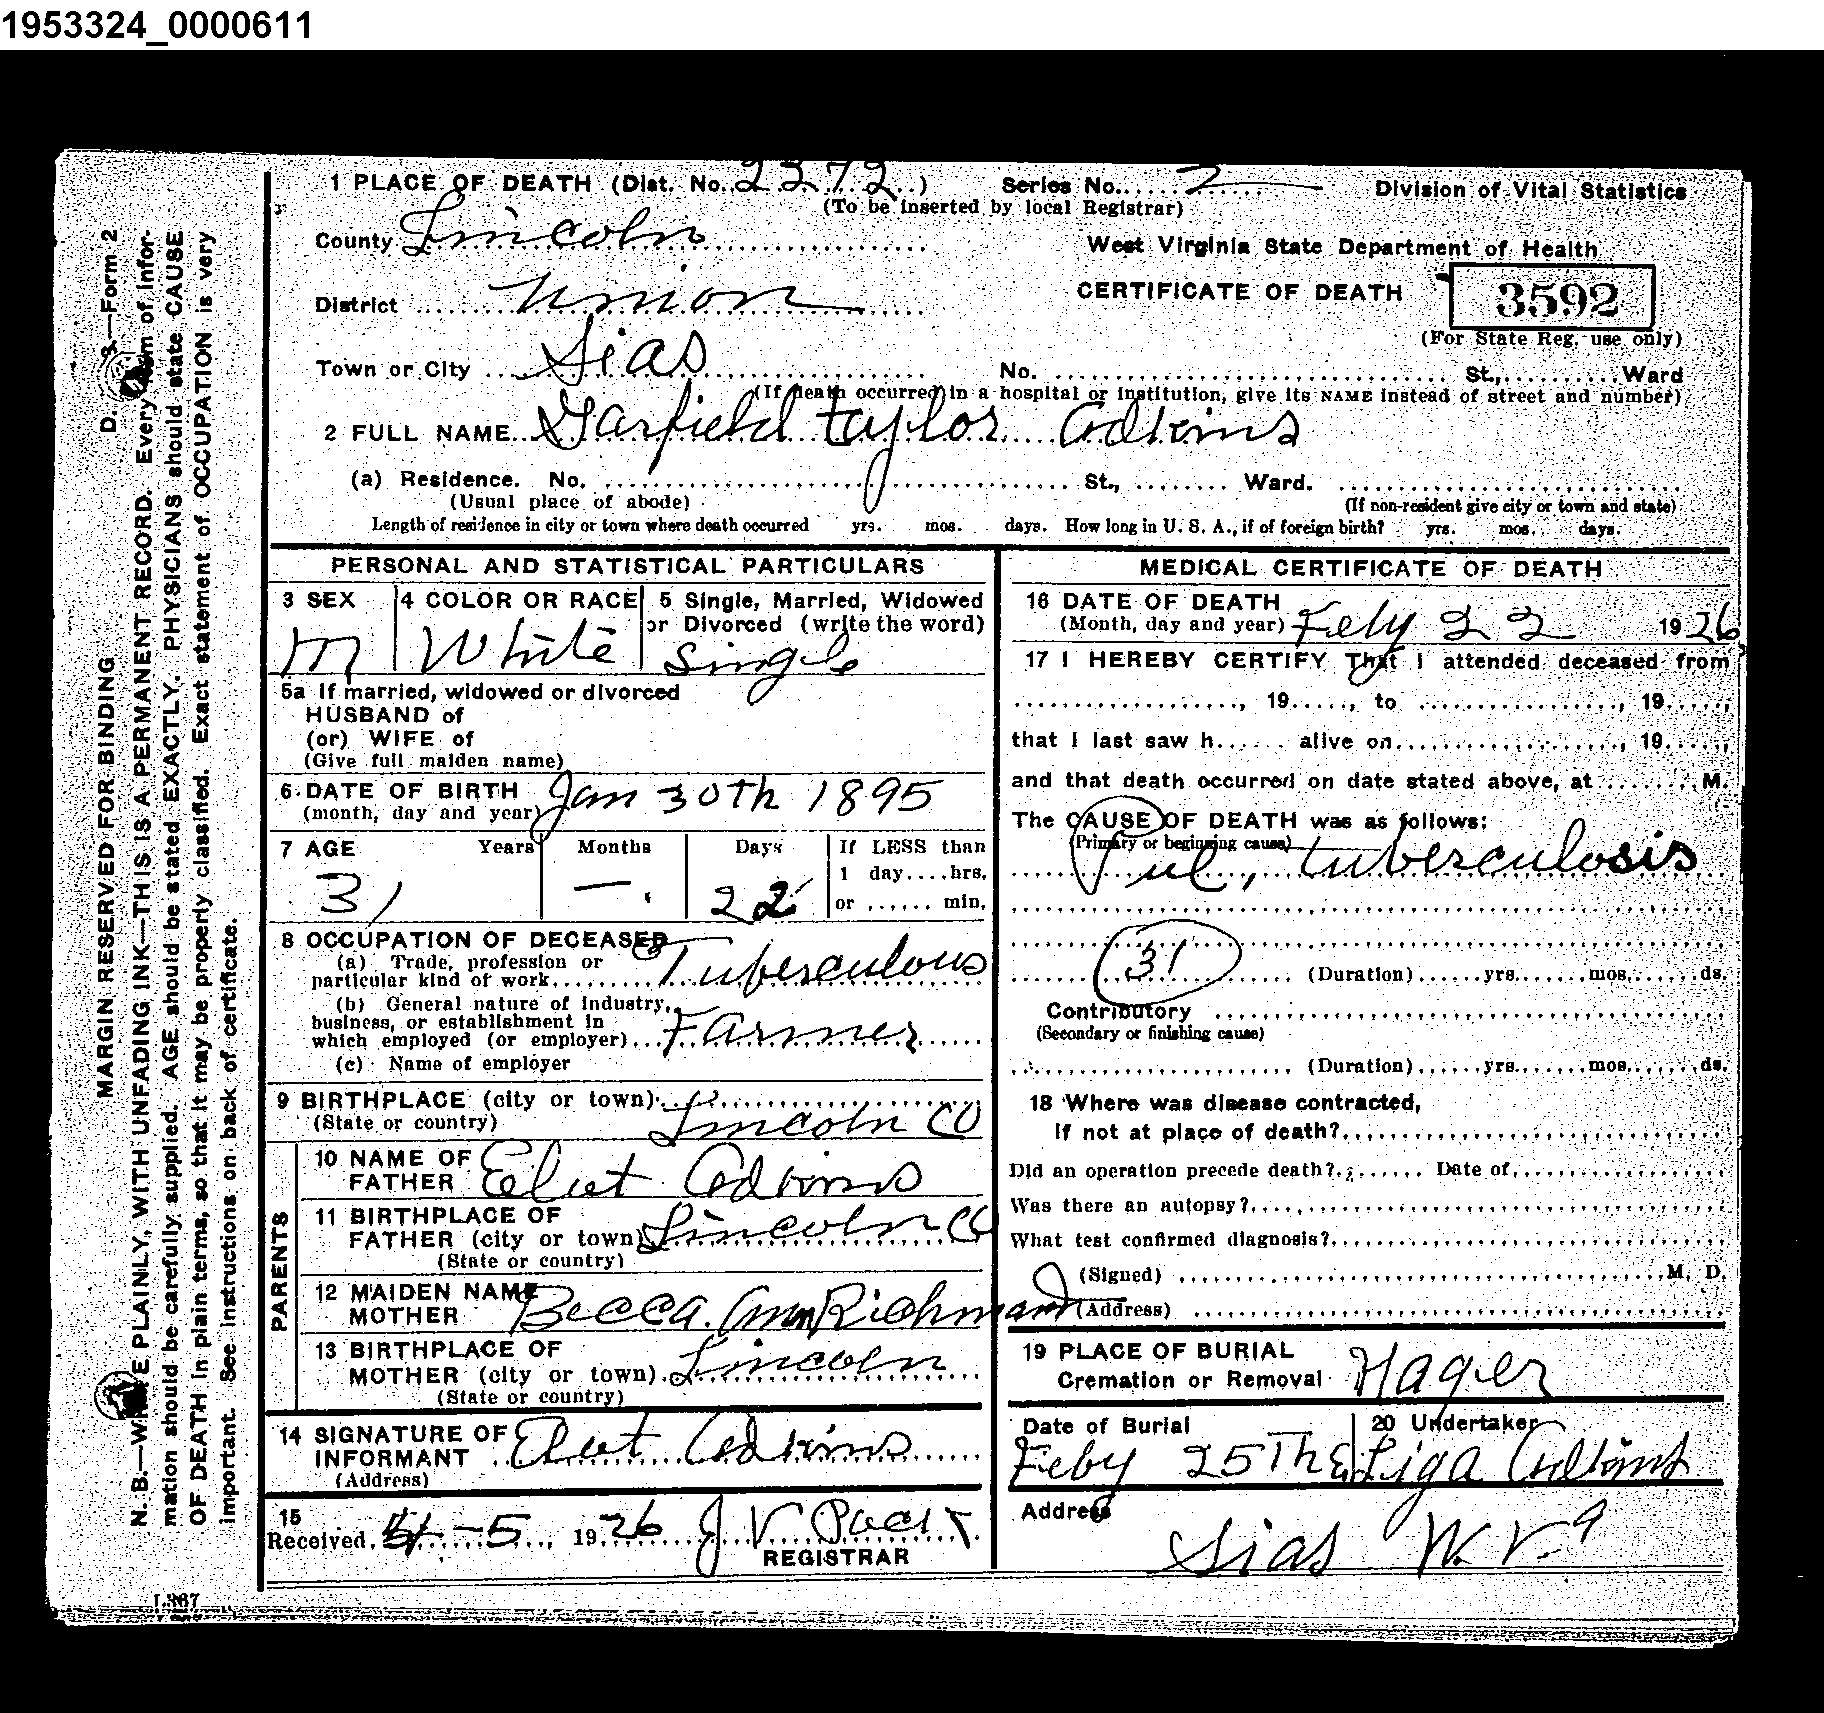 1953324_0000611
1 PLACE OF DEATH (Dist. No. 2372) Series No. 2 Division of Vital Statistics
(To be inserted by local Registrar)
County Lincoln West Virginia State Department of Health
District Union CERTIFICATE OF DEATH 3592
(For State Reg. use only)
Town or City Sias No. St., Ward
(If death occurred in a hospital or institution, give its NAME instead of street and number)
2 FULL NAME Garfield Taylor Adkins
(a) Residence. No. St., Ward.
(Usual place of abode) (If non-resident give city or town and state)
Length of residence in city or town where death occurred yrs. mos. days. How long in U. S. A., if of foreign birth? yrs. mos. days.
PERSONAL AND STATISTICAL PARTICULARS
3 SEX 4 COLOR OR RACE 5 Single, Married, Widowed
or Divorced (write the word)
M White Single
5a If married, widowed or divorced
HUSBAND of
(or) WIFE of
(Give full maiden name)
6 DATE OF BIRTH Jan 30th 1895
(month, day and year)
7 AGE Years Months Days If LESS than
1 day....hrs.
31 — 22 or ...... min.
8 OCCUPATION OF DECEASED
(a) Trade, profession or
particular kind of work Tuberculous
(b) General nature of Industry,
business, or establishment in
which employed (or employer) Farmer
(c) Name of employer
9 BIRTHPLACE (city or town)
(State or country) Lincoln CO
PARENTS
10 NAME OF
FATHER Adkins
11 BIRTHPLACE OF
FATHER (city or town) Lincoln Co
(State or country)
12 MAIDEN NAME
MOTHER Becca Ann Richmand
13 BIRTHPLACE OF
MOTHER (city or town) Lincoln
(State or country)
14 SIGNATURE OF
INFORMANT Adkins
(Address)
15
Received -5, 1926 J V
REGISTRAR
MEDICAL CERTIFICATE OF DEATH
16 DATE OF DEATH
(Month, day and year) Feby 22 1926
17 I HEREBY CERTIFY That I attended deceased from
, 19....., to , 19.....,
that I last saw h...... alive on , 19.....,
and that death occurred on date stated above, at M.
The CAUSE OF DEATH was as follows:
(Primary or beginning cause)
Pul, tuberculosis
31 (Duration) yrs. mos. ds.
Contributory
(Secondary or finishing cause)
(Duration) yrs. mos. ds.
18 Where was disease contracted,
If not at place of death?
Did an operation precede death? Date of
Was there an autopsy?
What test confirmed diagnosis?
(Signed) M. D.
(Address)
19 PLACE OF BURIAL
Cremation or Removal Hager
Date of Burial 20 Undertaker
Feby 25Th Adkins
Address
Sias W. Va
MARGIN RESERVED FOR BINDING
N. B.—WRITE PLAINLY, WITH UNFADING INK—THIS IS A PERMANENT RECORD. Every item of infor-
mation should be carefully supplied. AGE should be stated EXACTLY. PHYSICIANS should state CAUSE
OF DEATH in plain terms, so that it may be properly classified. Exact statement of OCCUPATION is very
important. See instructions on back of certificate.
—Form 2